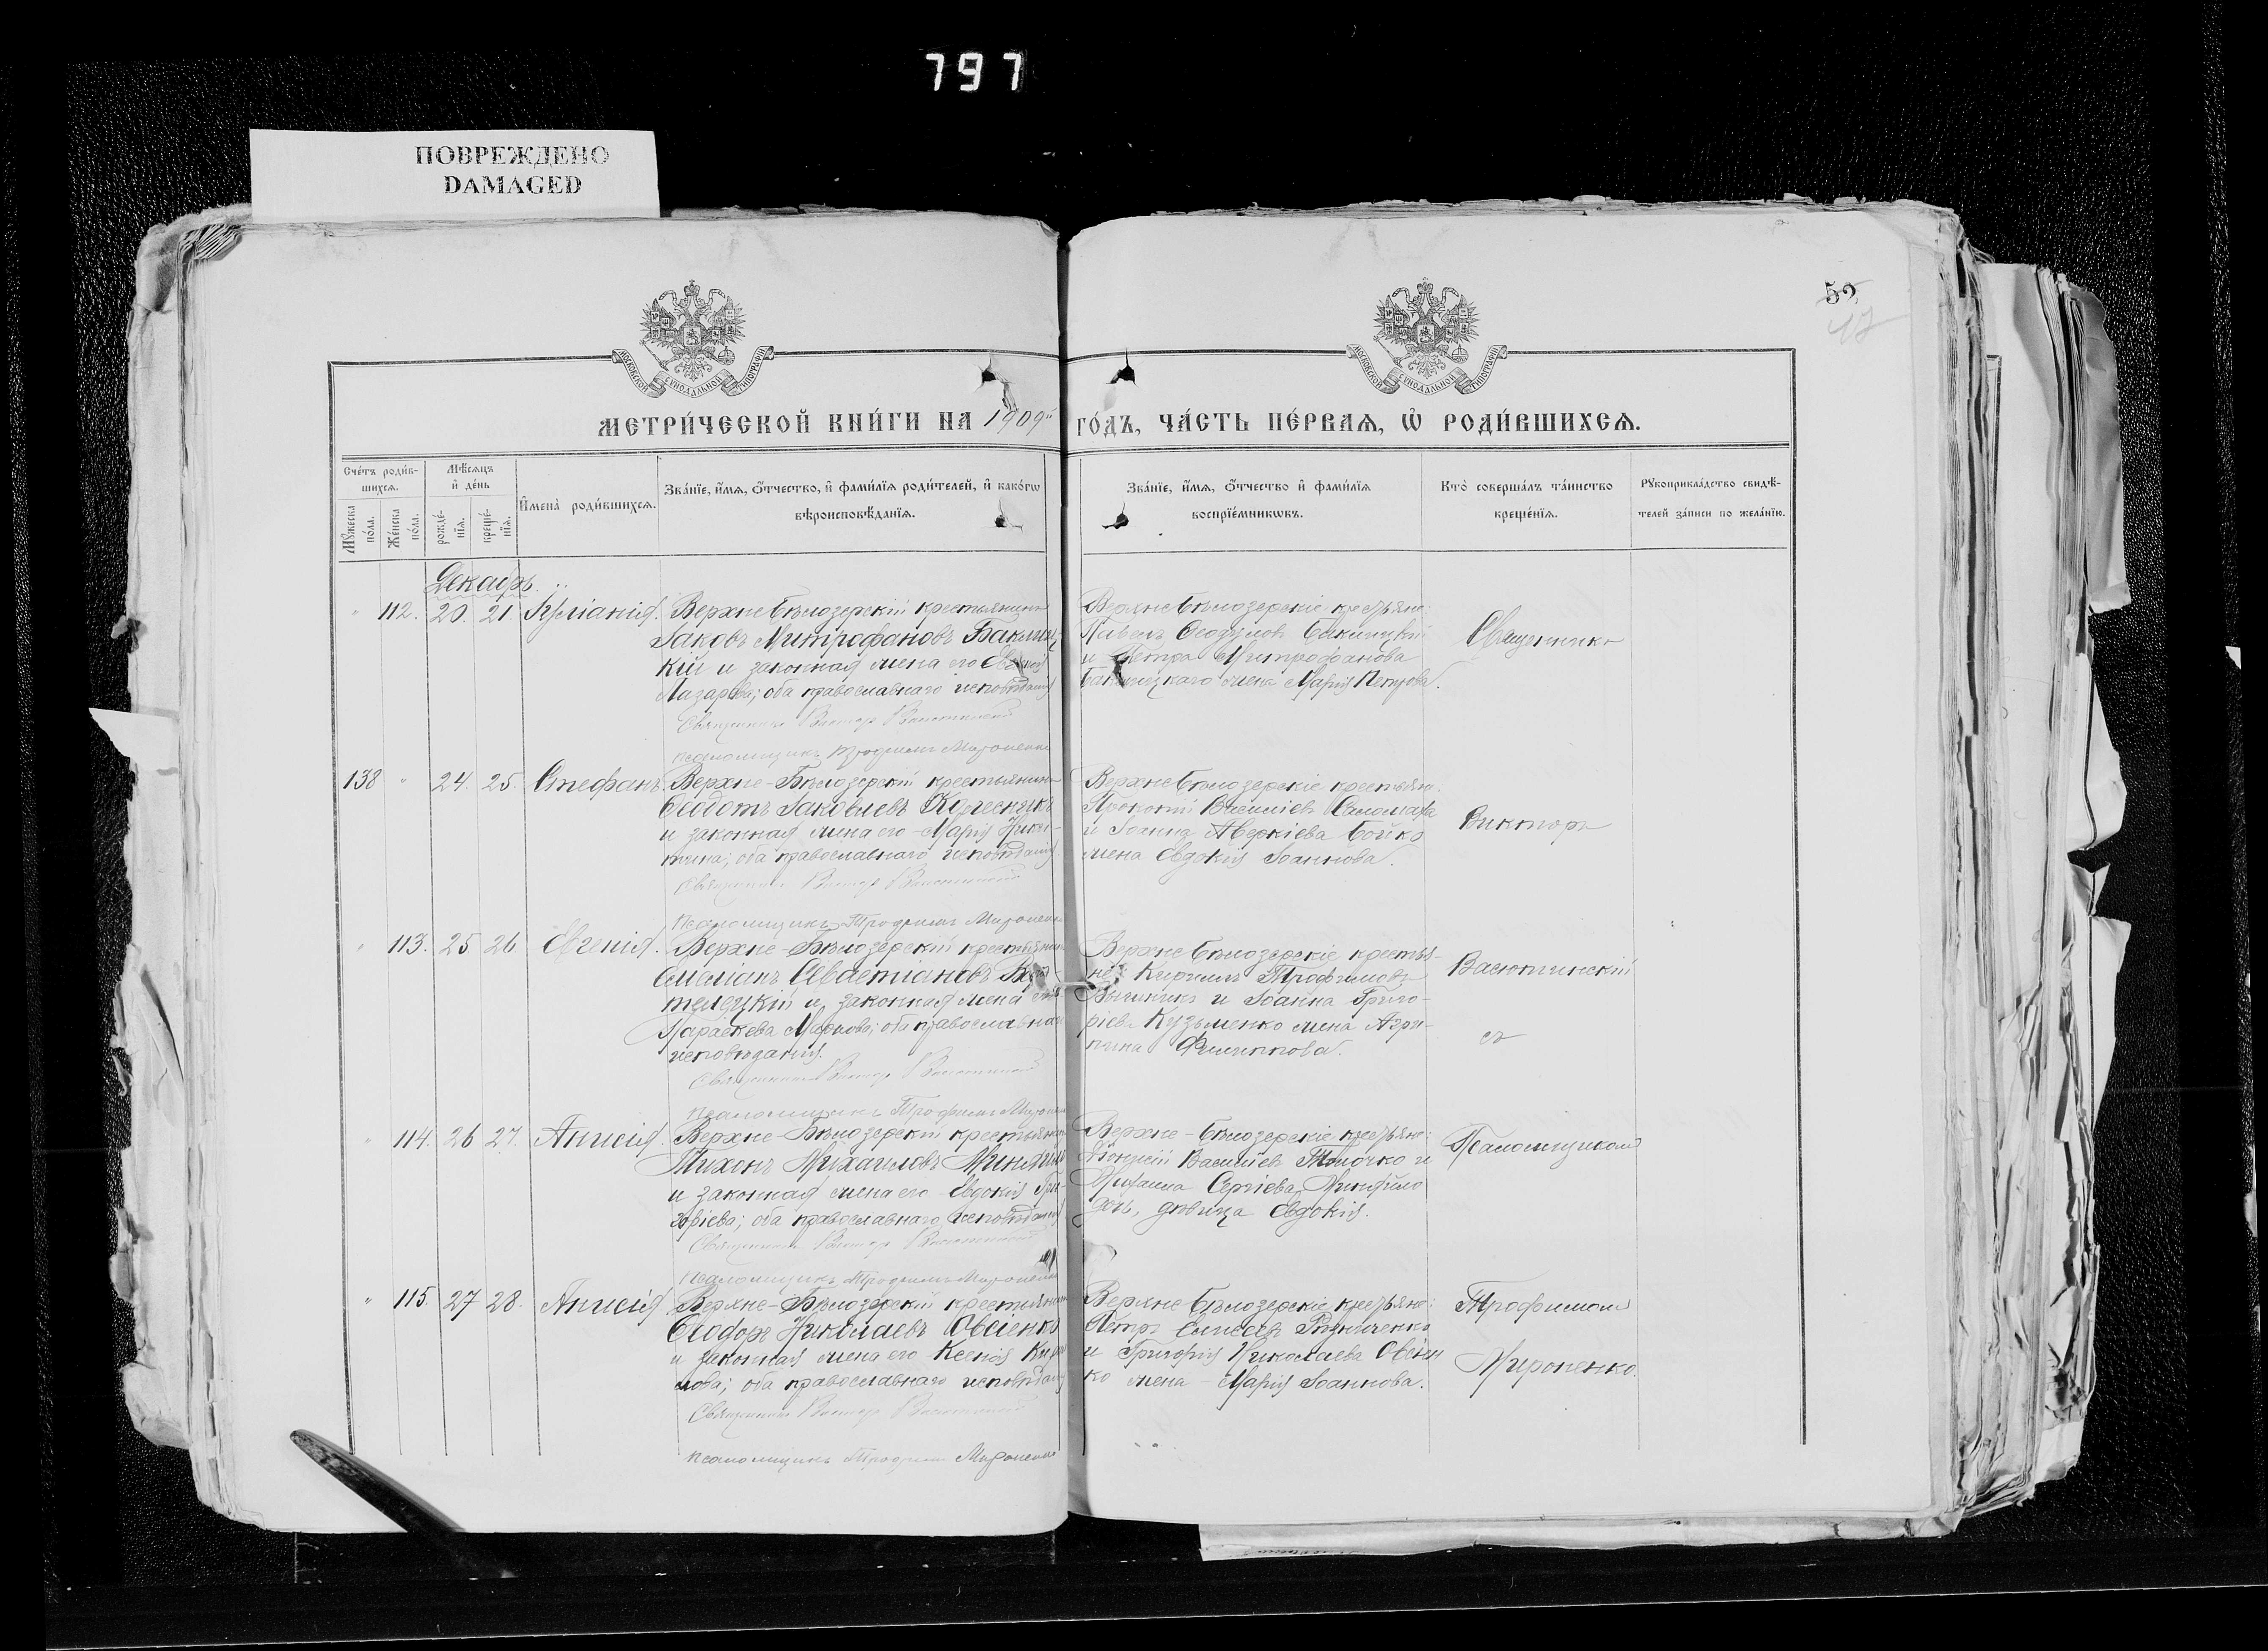 797
ПОВРЕЖДЕНО
DAMAGED
52
17
МОСКОВСКОЙ СѴНОДАЛЬНОЙ ТИПОГРАФІИ
МОСКОВСКОЙ СѴНОДАЛЬНОЙ ТИПОГРАФІИ
МЕТРИ́ЧЕСКОЙ КНИ́ГИ НА 1909й ГО́ДЪ, ЧА́СТЬ ПЕ́РВАѦ, Ѡ҆ РОДИ́ВШИХСѦ.
Сче́тъ роди́в-
шихсѧ.
Мꙋ́жеска по́ла.
Же́нска по́ла.
Мѣ́сѧцъ
и҆ де́нь
рожде́-нїѧ.
креще́-нїѧ.
И҆мена̀ роди́вшихсѧ.
Зва́нїе, и҆́мѧ, ѻ҆́тчество, и҆ фами́лїѧ роди́телей, и҆ како́гѡ
вѣроисповѣ́данїѧ.
Зва́нїе, и҆́мѧ, ѻ҆́тчество и҆ фами́лїѧ
воспрїе́мникѡвъ.
Кто̀ соверша́лъ та́инство
креще́нїѧ.
Рꙋкоприкла́дство свидѣ́-
телей за́писи по жела́нїю.
Декабрь.
" 112. 20. 21. Іуліанія.
Верхне Бѣлозерскій крестьянинъ
Іаковъ Митрофановъ Баклиц-
кій и законная жена его
Лазарева; оба православнаго исповѣданія
Священникъ Викторъ Васютинскій
Псаломщикъ Трофимъ Мироненко
Верхне Бѣлозерскіе крестьяне:
Павелъ Баклицкій
и Петра Митрофанова
Баклицкаго жена Марія Петрова.
Священникъ
138 " 24. 25. Стефанъ.
Верхне-Бѣлозерскій крестьянинъ
Ѳеодотъ Іаковлевъ Колесникъ
и законная жена его Марія Ники-
тина; оба православнаго исповѣданія
Священникъ Викторъ Васютинскій
Псаломщикъ Трофимъ Мироненко
Верхне Бѣлозерскіе крестьяне:
Прокопій Василіевъ Саломаха
и Іоанна Аверкіева Бойко
жена Евдокія Іоаннова.
Викторъ
" 113. 25 26 Евгенія.
Верхне-Бѣлозерскій крестьянинъ
Емеліанъ Севастіановъ
и законная жена его
Параскева Маркова; оба православнаго
исповѣданія.
Священникъ Викторъ Васютинскій
Псаломщикъ Трофимъ Мироненко
Верхне Бѣлозерскіе крестья-
не: Кириллъ Трофимовъ
и Іоанна Григо-
ріева Кузьменко жена Агри-
пина Филиппова.
Васютинскій
съ
" 114. 26 27. Анисія.
Верхне-Бѣлозерскій крестьянинъ
Тихонъ Михаиловъ
и законная жена его Евдокія Гри-
горіева; оба православнаго исповѣданія
Священникъ Викторъ Васютинскій
Псаломщикъ Трофимъ Мироненко
Верхне-Бѣлозерскіе крестьяне:
Василіевъ и
Михаила Сергіева
дочь, дѣвица Евдокія.
Псаломщикомъ
" 115. 27 28. Анисія
Верхне-Бѣлозерскій крестьянинъ
Ѳеодоръ Николаевъ Овсіенко
и законная жена его Ксенія Кирил-
лова; оба православнаго исповѣданія
Священникъ Викторъ Васютинскій
Псаломщикъ Трофимъ Мироненко
Верхне Бѣлозерскіе крестьяне:
Петръ Елисеевъ Резниченко
и Григорія Николаева Овсіен
ко жена Марія Іоаннова.
Трофимомъ
Мироненко.